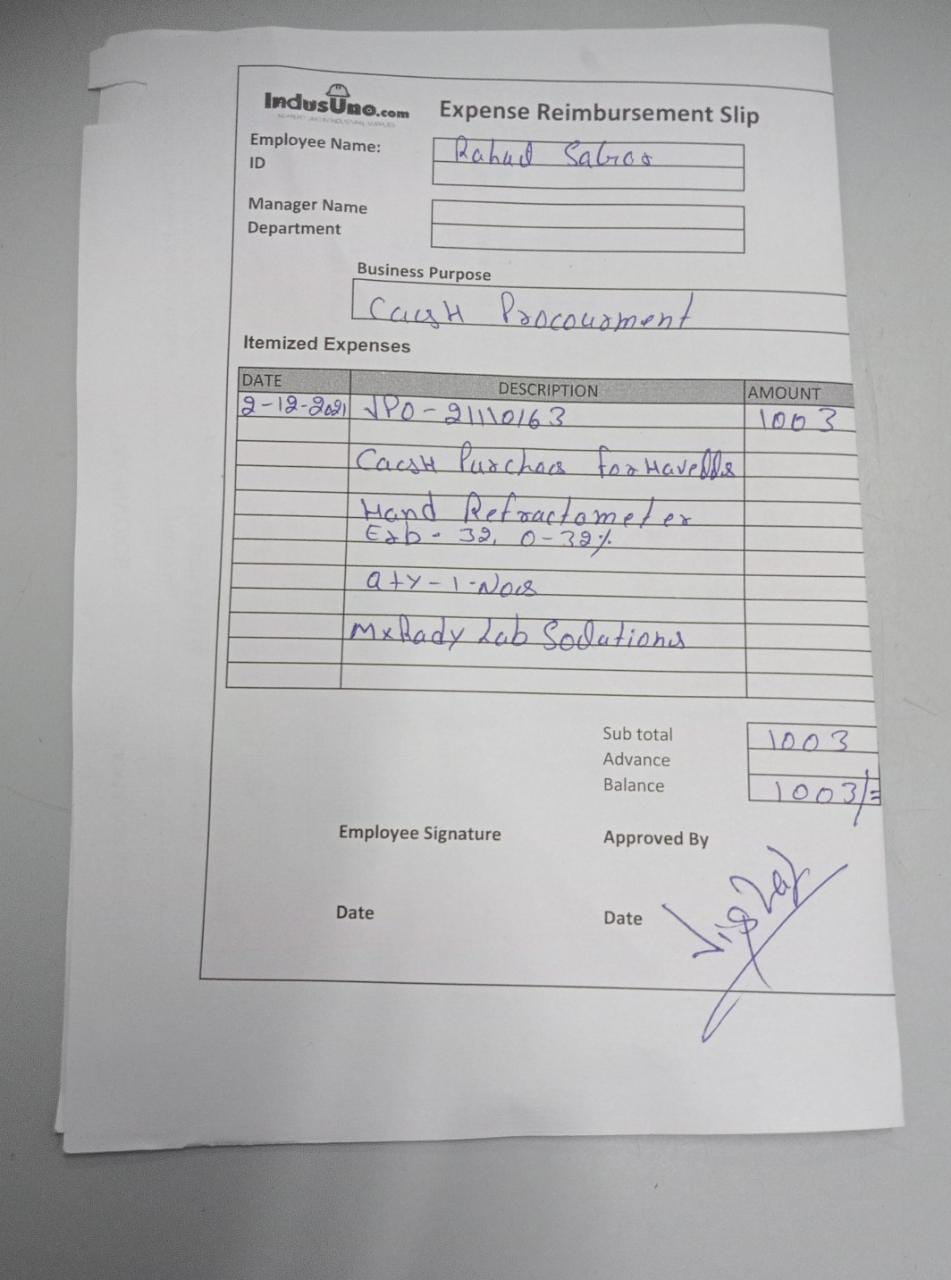 IndusUno.com
Expense Reimbursement Slip
Employee Name:
Rahul
ID
Manager Name
Department
Business Purpose
Caush Procourment
Itemized Expenses
DATE DESCRIPTION AMOUNT
2-12-2021 VPO-21110163 1003
Cacsh Purchacs for Havells
Hand Refractometer
Erb - 32, 0-32%
Qty-1-Nos
Lab Solutions
Sub total 1003
Advance
Balance 1003/=
Employee Signature Approved By
Date Date